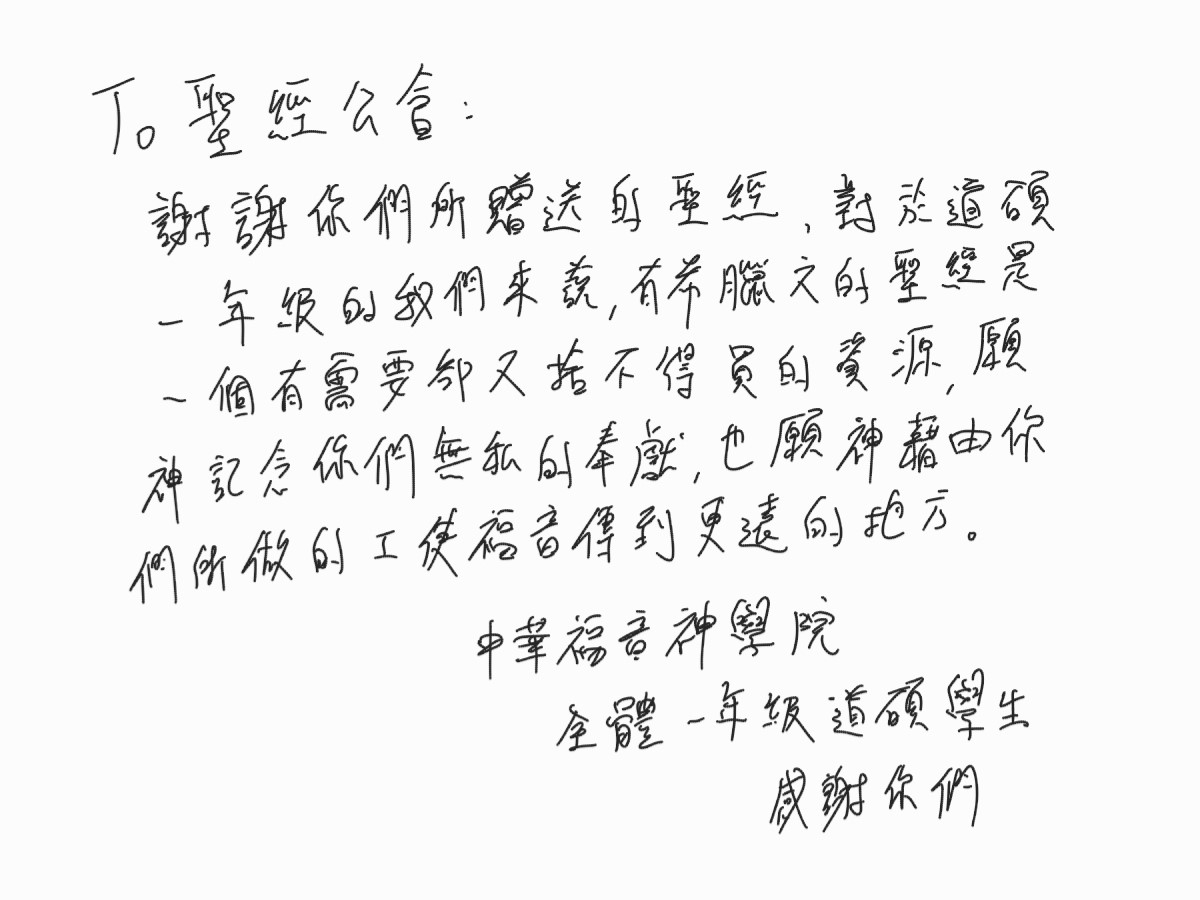 To 聖經公會:
謝謝你們所贈送的聖經,對於道碩
一年級的我們來說,有希臘文的聖經是
一個有需要卻又捨不得買的資源,願
神記念你們無私的奉獻,也願神藉由你
們所做的工使福音傳到更遠的地方。
中華福音神學院
全體一年級道碩學生
感謝你們